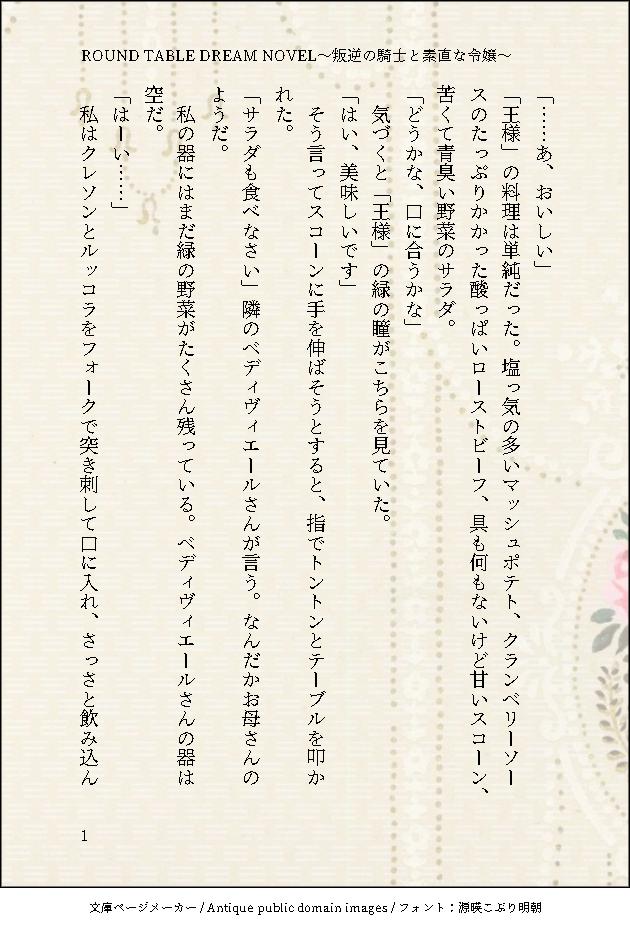 ROUND TABLE DREAM NOVEL～叛逆の騎士と素直な令嬢～
「……あ、おいしい」
「王様」の料理は単純だった。塩っ気の多いマッシュポテト、クランベリーソー
スのたっぷりかかった酸っぱいローストビーフ、具も何もないけど甘いスコーン、
苦くて青臭い野菜のサラダ。
「どうかな、口に合うかな」
気づくと「王様」の緑の瞳がこちらを見ていた。
「はい、美味しいです」
そう言ってスコーンに手を伸ばそうとすると、指でトントンとテーブルを叩か
れた。
「サラダも食べなさい」隣のベディヴィエールさんが言う。なんだかお母さんの
ようだ。
私の器にはまだ緑の野菜がたくさん残っている。ベディヴィエールさんの器は
空だ。
「はーい……」
私はクレソンとルッコラをフォークで突き刺して口に入れ、さっさと飲み込ん
1
文庫ページメーカー / Antique public domain images / フォント：源暎こぶり明朝